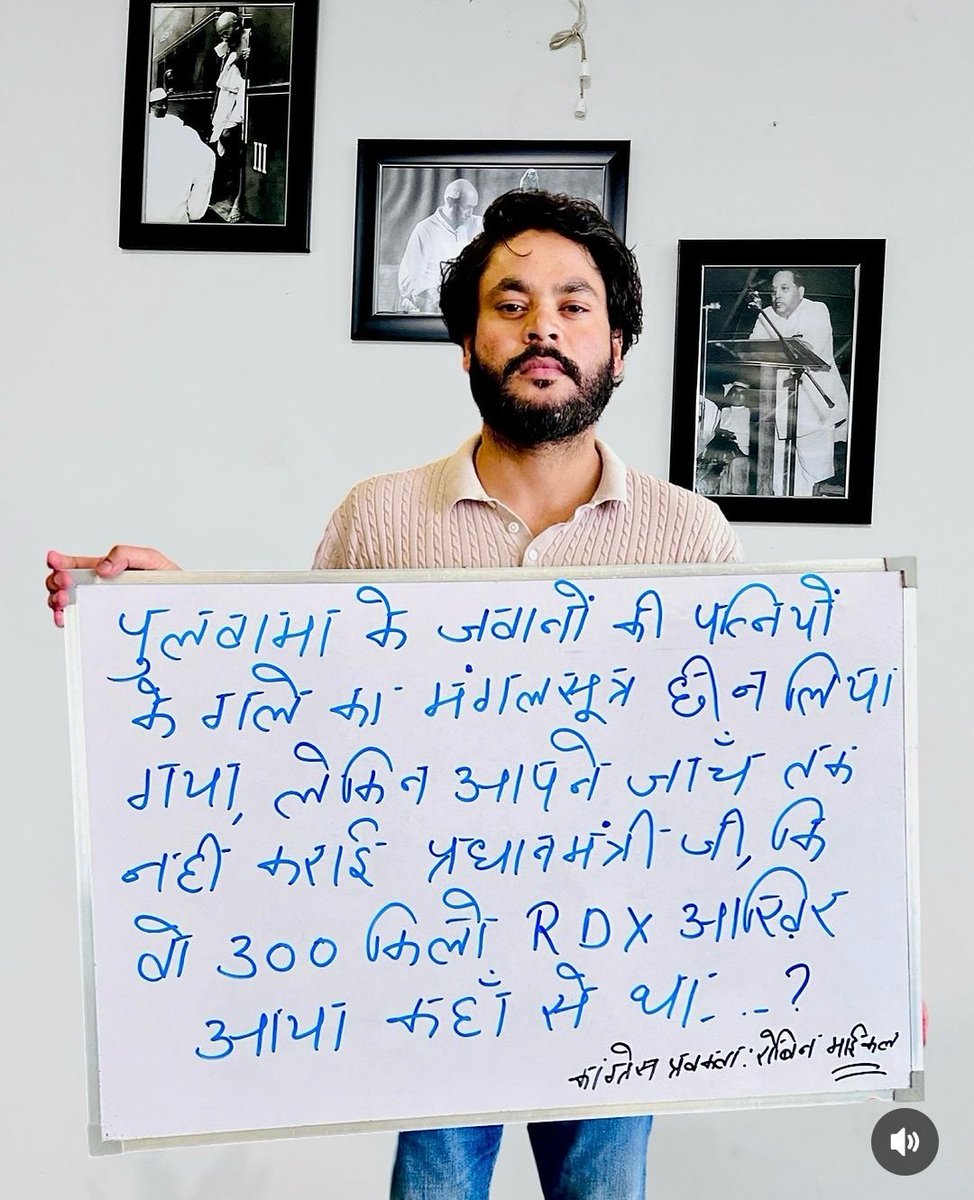 पुलवामा के जवानों की पत्नियों
के गले का मंगलसूत्र छीन लिया
गया, लेकिन आपने जाँच तक
नहीं कराई प्रधानमंत्री जी, कि
वो 300 किलो RDX आखिर
आया कहाँ से था...?
कांग्रेस प्रवक्ता: रोबिन माईकल